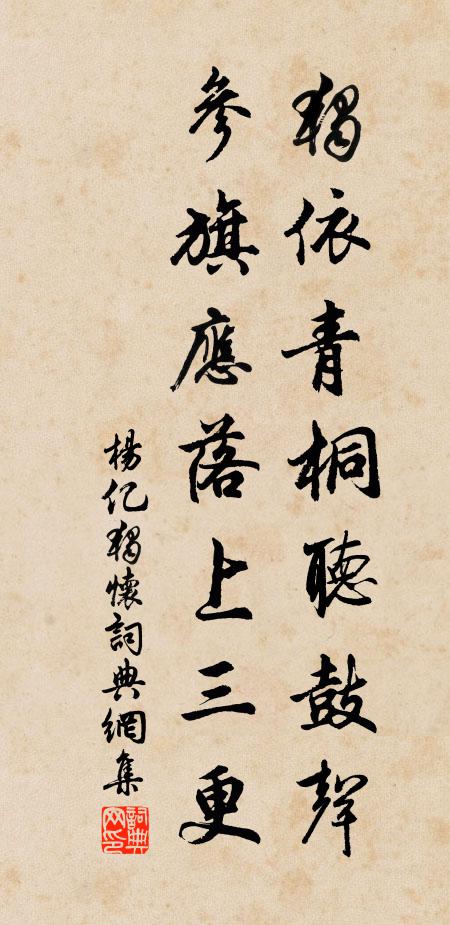 獨依青桐聽鼓聲
參旗應落上三更
楊億獨懷詞典網集
詞典網印